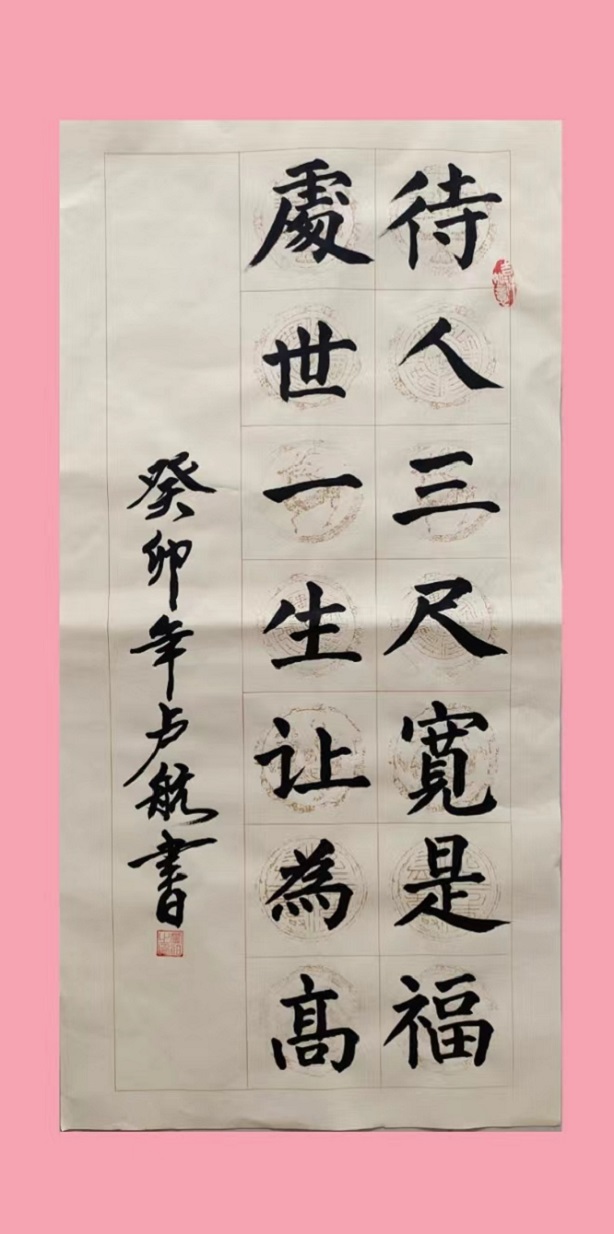 待人三尺寬是福
處世一生让為高
癸卯年卢航書